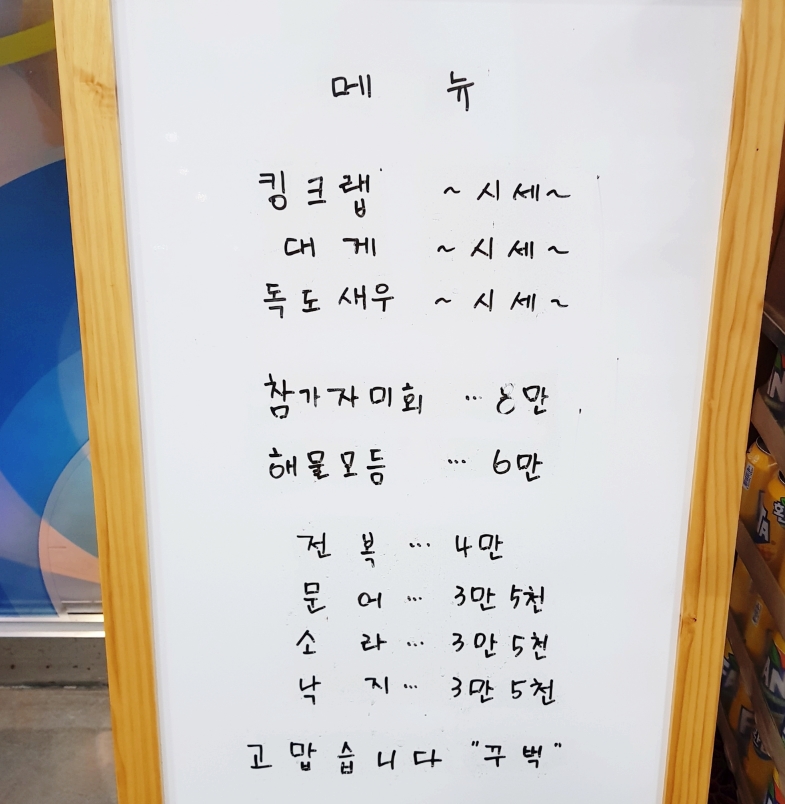 메 뉴
킹크랩 ~시세~
대게 ~시세~
독도새우 ~시세~
참가자미회 … 8만
해물모듬 … 6만
전복 … 4만
문어 … 3만 5천
소라 … 3만 5천
낙지 … 3만 5천
고맙습니다 "꾸벅"